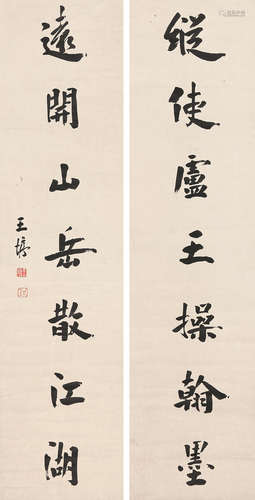 縱使盧王操翰墨
遠開山岳散江湖
王揚